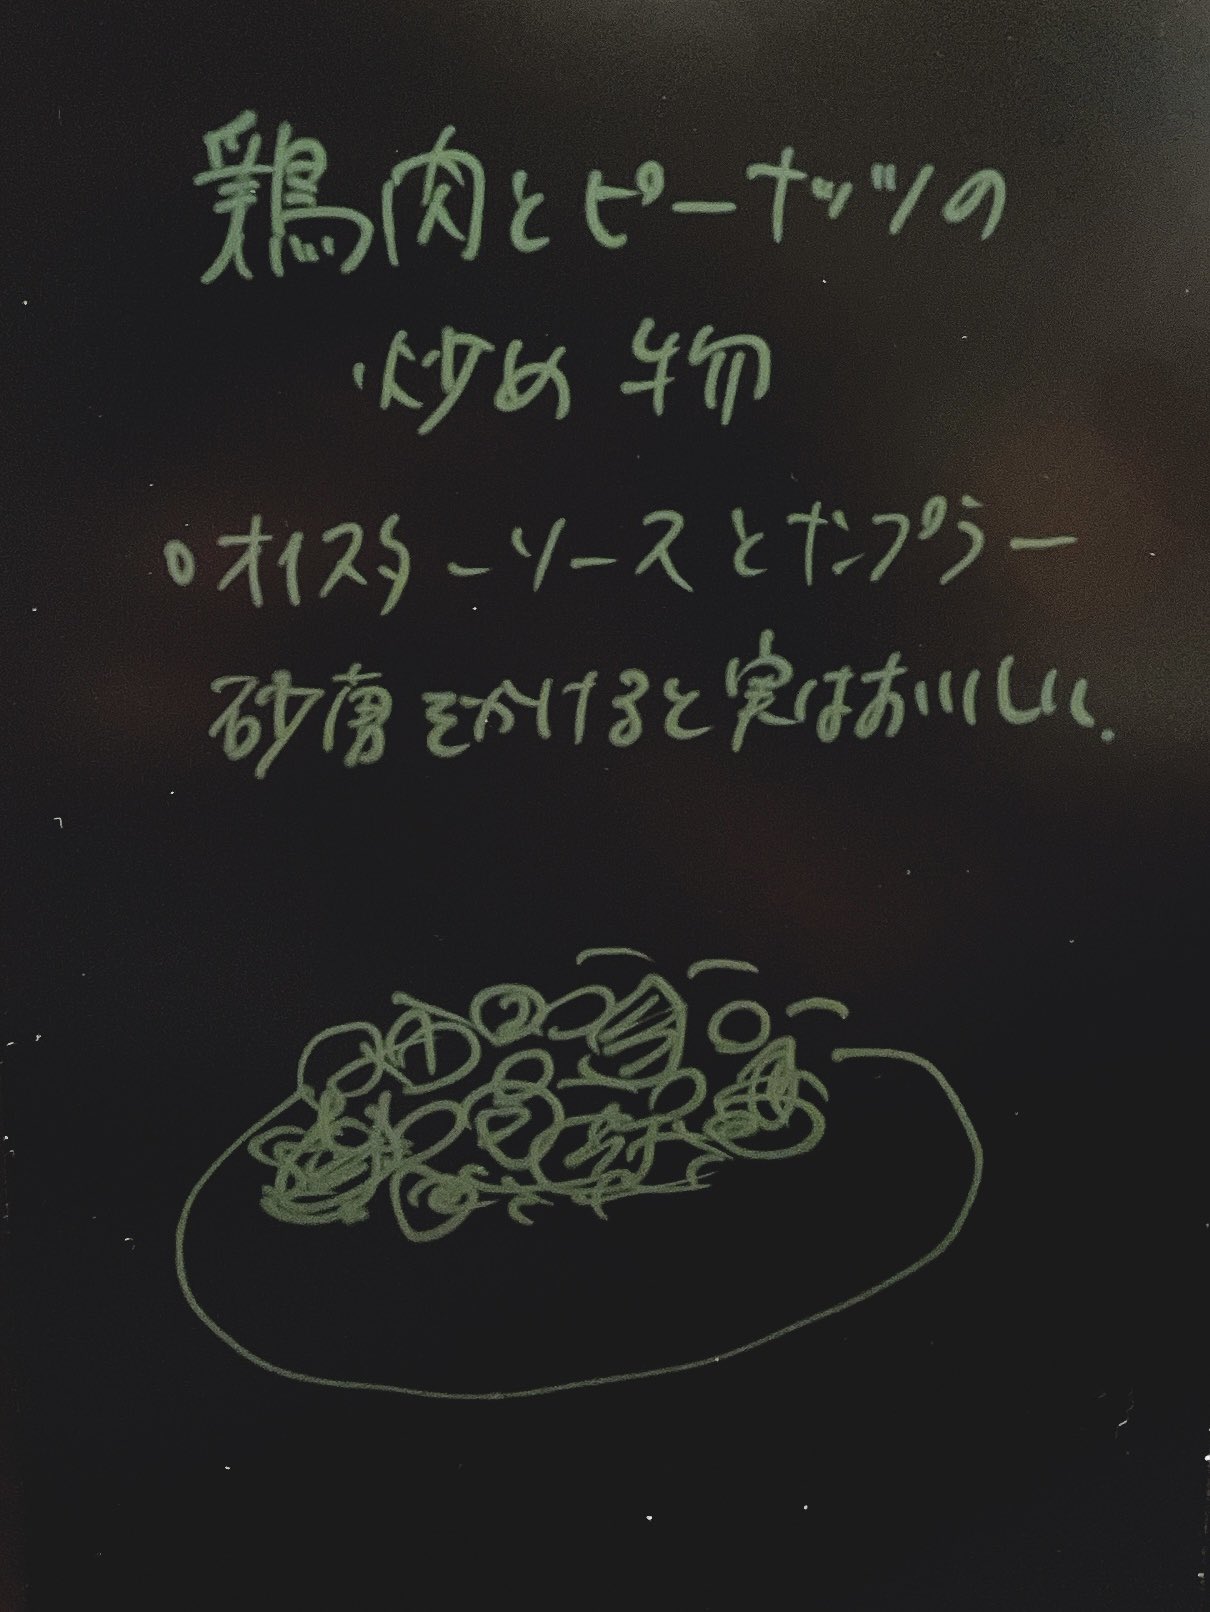 鶏肉とピーナッツの
炒め物
○オイスターソースとナンプラー
砂唐をかけると実はおいしい.